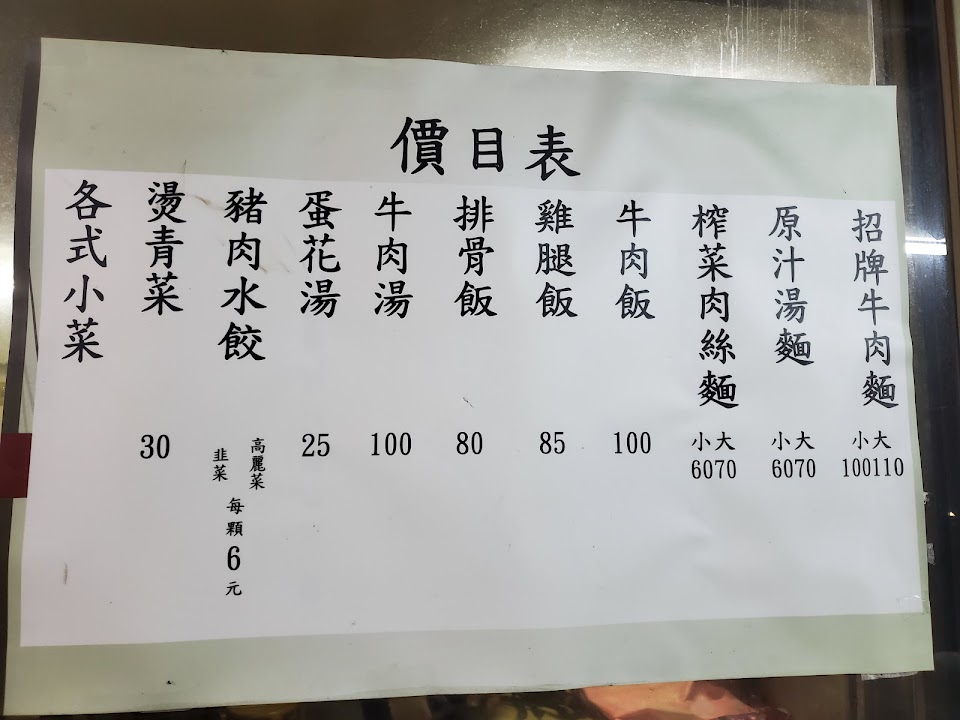 價目表
招牌牛肉麵
小大
100110
原汁湯麵
小大
6070
榨菜肉絲麵
小大
6070
牛肉飯
100
雞腿飯
85
排骨飯
80
牛肉湯
100
蛋花湯
25
豬肉水餃
高麗菜
韭菜
每顆6元
燙青菜
30
各式小菜